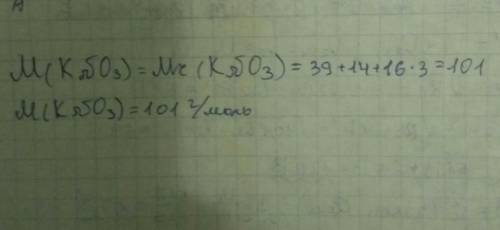 M(KNO3) = Mr(KNO3) = 39+14+16·3=101
M(KNO3)=101 г/моль